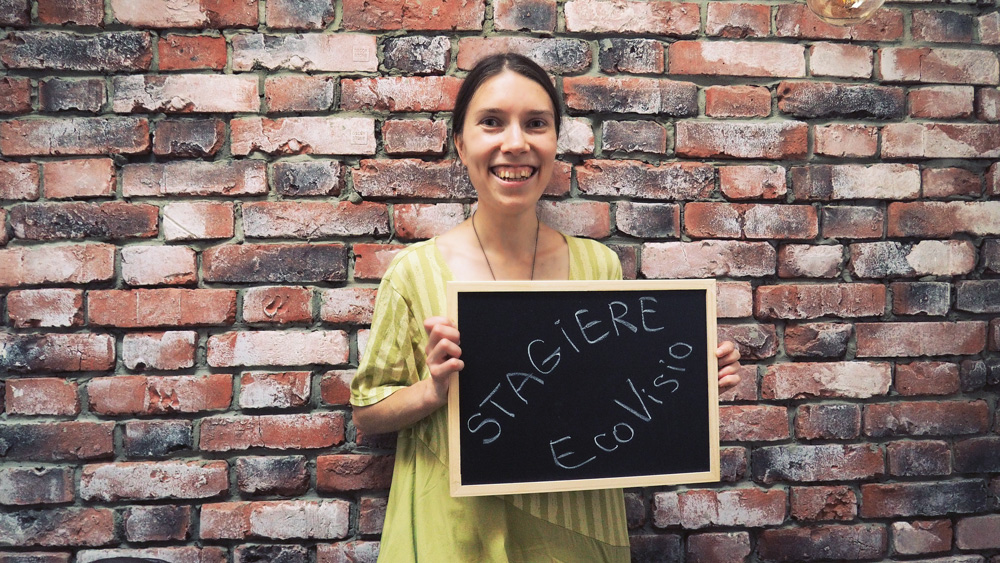 STAGiERE
EcoVisio